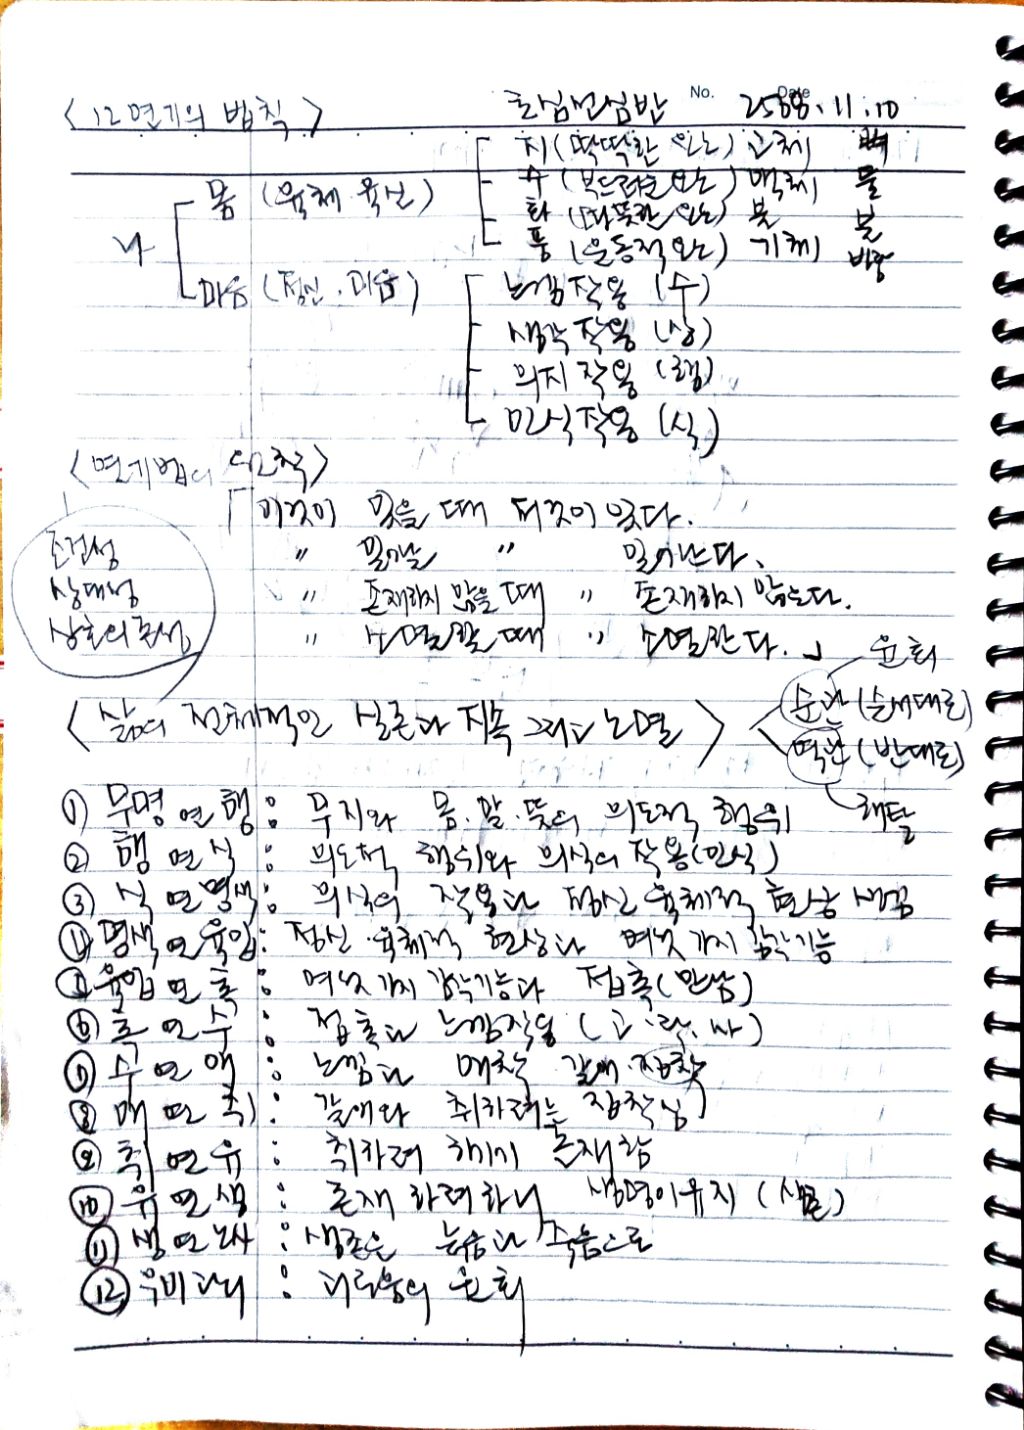 No. Date
<12연기의 법칙> 초심선심반 2588.11.10
지 (딱딱한 요소) 고체 뼈
몸 (육체 육신) 수 (부드러운 요소) 액체 물
나 화 (따뜻한 요소) 불 불
풍 (운동적 요소) 기체 바람
마음 (정신·마음) 느낌작용 (수)
생각작용 (상)
의지작용 (행)
인식작용 (식)
<연기법의 원칙>
「이것이 있을 때 저것이 있다.
조건성 〃 일어날 〃 일어난다.
상대성 〃 존재하지 않을 때 〃 존재하지 않는다.
상호의존성 〃 소멸할 때 〃 소멸한다.」
윤회
<삶의 전체적인 실존과 지속 그리고 소멸> 순관 (순서대로)
역관 (반대로)
해탈
① 무명 연 행 : 무지와 몸·말·뜻의 의도적 행위
② 행 연 식 : 의도적 행위와 의식의 작용(인식)
③ 식 연 명색 : 의식의 작용과 정신 육체적 현상 생김
④ 명색 연 육입 : 정신·육체적 현상과 여섯 가지 감각기능
⑤ 육입 연 촉 : 여섯 가지 감각기능과 접촉(만남)
⑥ 촉 연 수 : 접촉과 느낌작용 (고·락·사)
⑦ 수 연 애 : 느낌과 애착 갈애·집착
⑧ 애 연 취 : 갈애와 취하려는 집착심
⑨ 취 연 유 : 취하려 하기에 존재함
⑩ 유 연 생 : 존재하려하니 생명이 유지 (생존)
⑪ 생 연 노사 : 생존은 늙음과 죽음으로
⑫ 우비고뇌 : 괴로움의 윤회